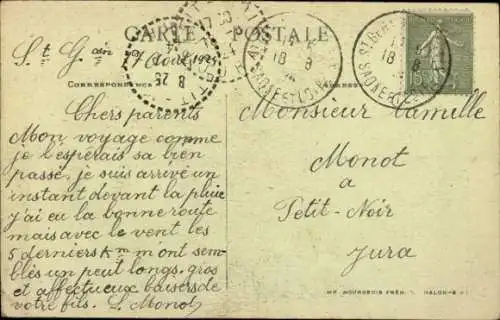 CARTE POSTALE
St. G
17 Août 1925
CORRESPONDANCE
Chers parents
Mon voyage comme
je l'esperais sa bien
passé, je suis arrivé un
instant devant la pluie
j'ai eu la bonne route
mais avec le vent les
5 derniers Km m'ont sem-
blés un peut longs, gros
et affectueux baisers de
votre fils. L. Monot
Monsieur Camille
Monot
a
Petit-Noir
Jura
18 8
18 8
SAONE-ET-L
15